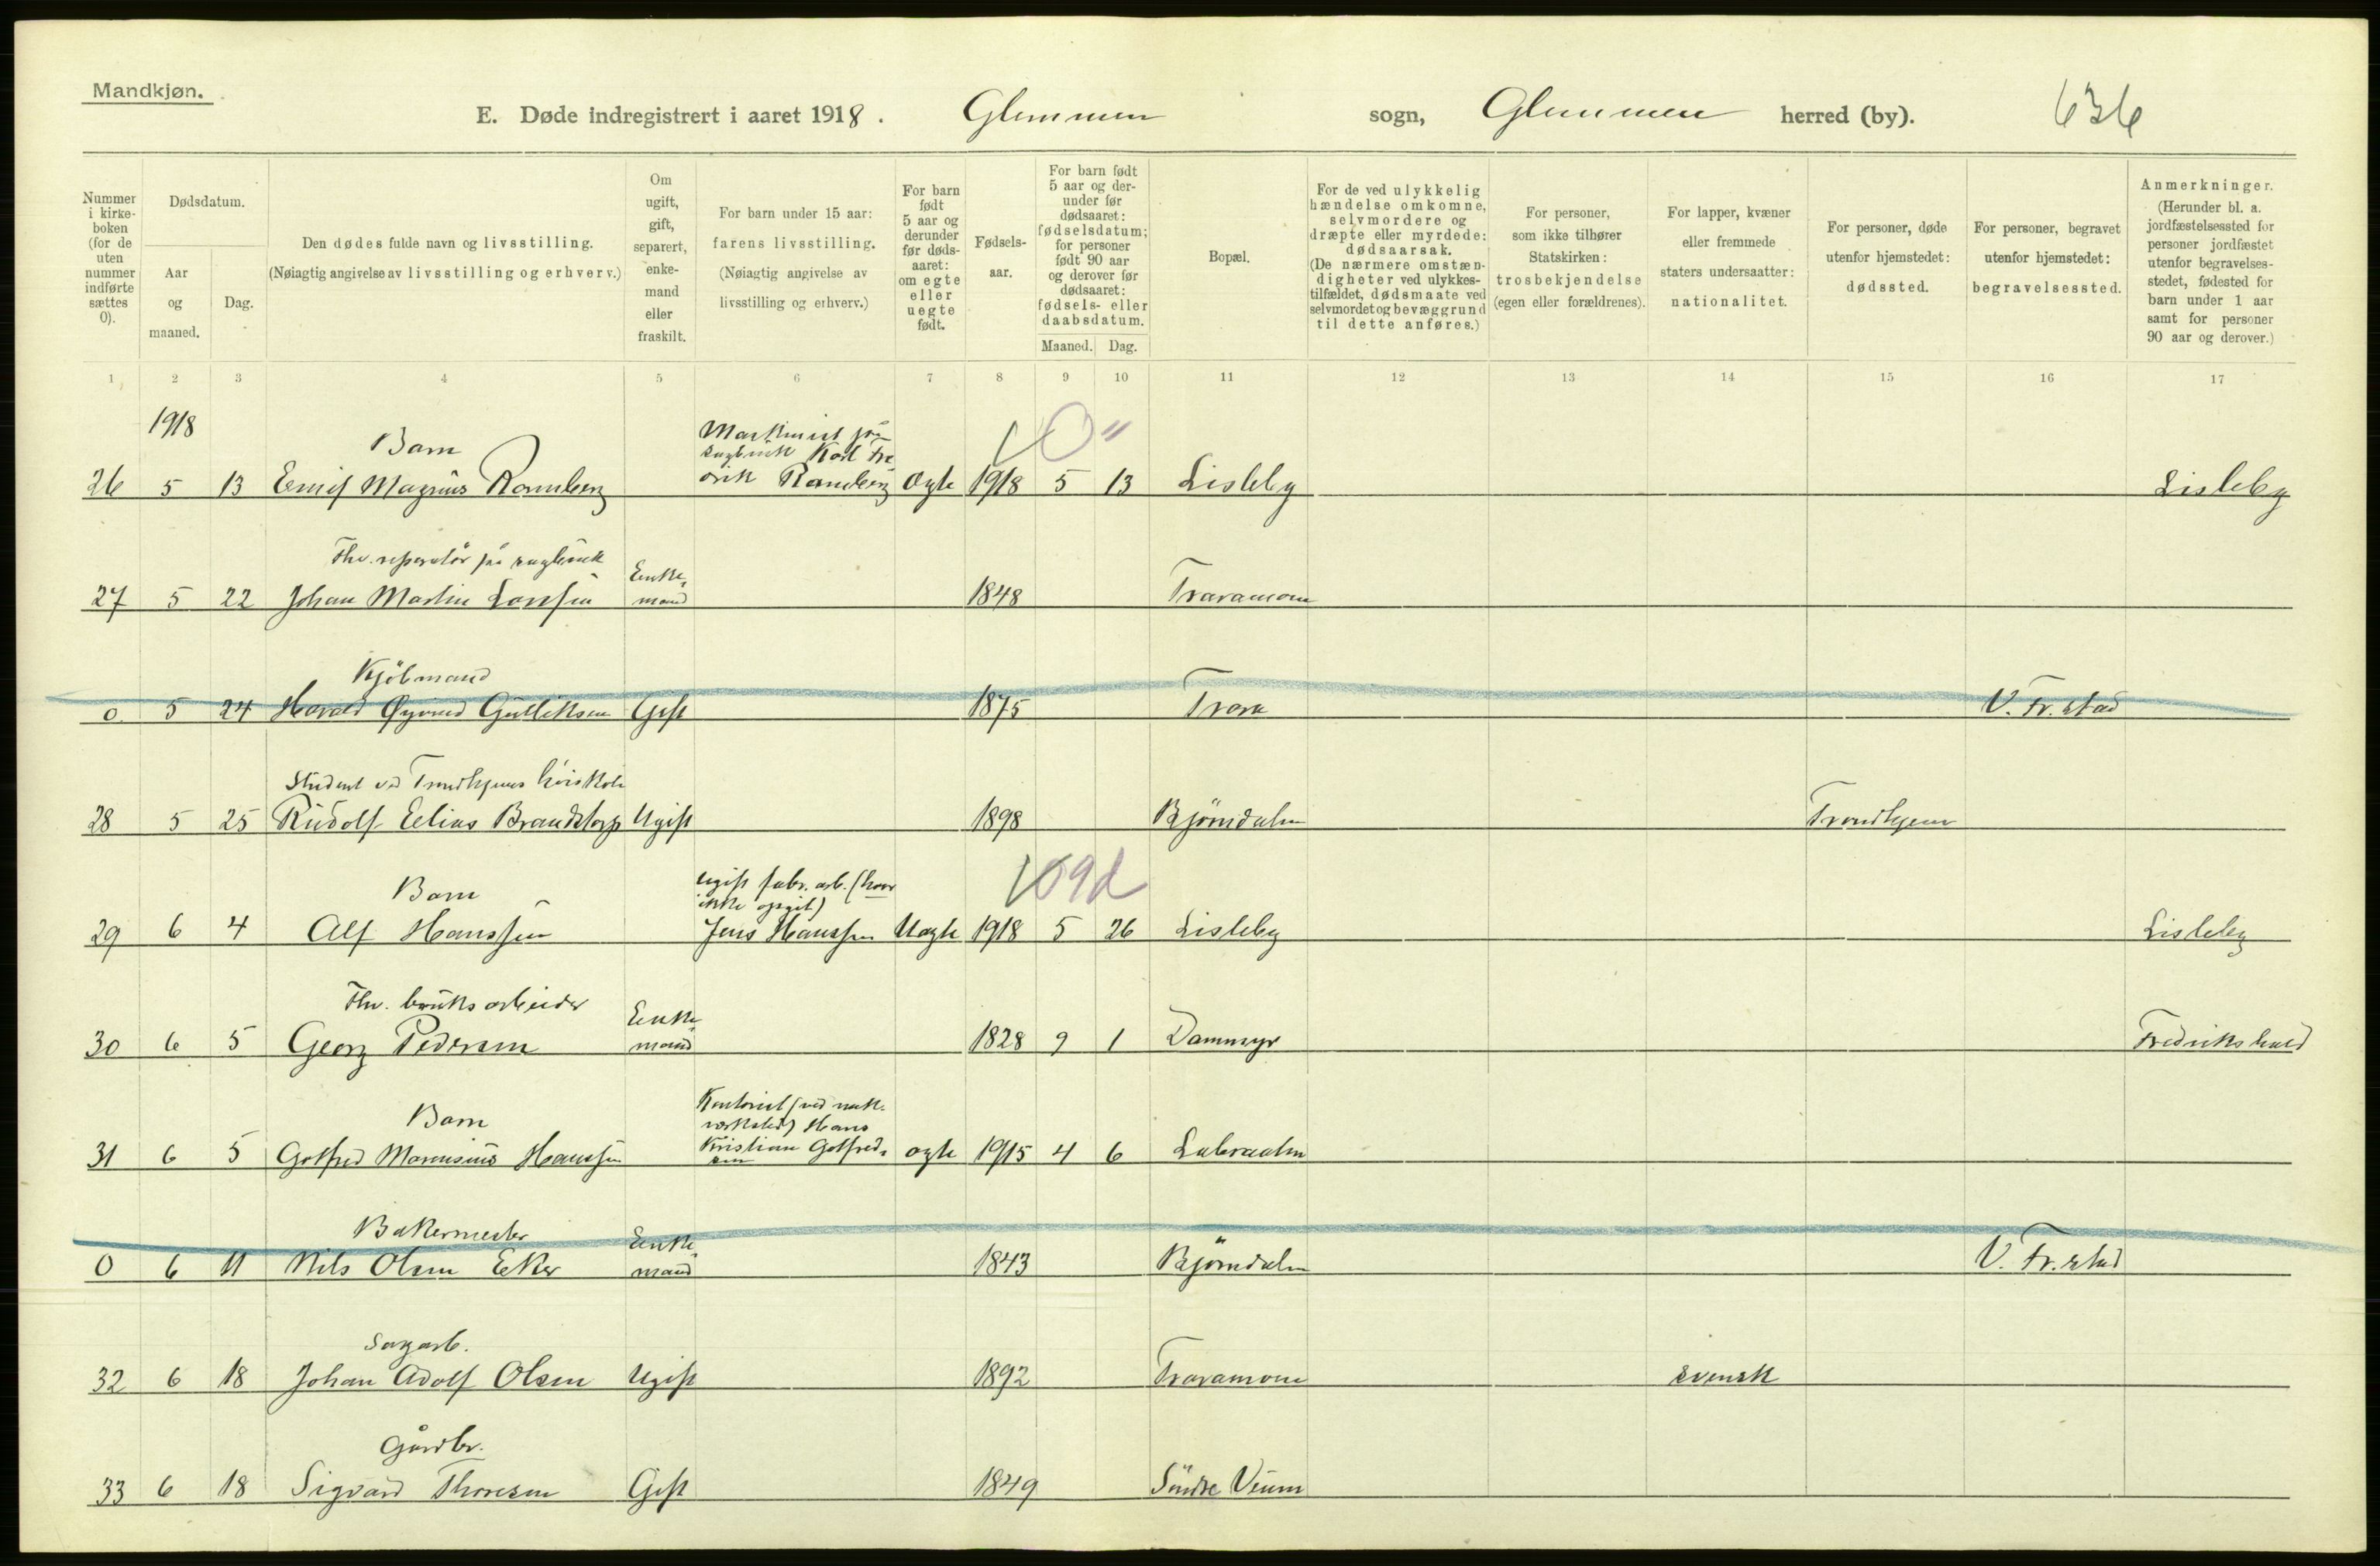 Mandkjøn.
E. Døde indregistrert i aaret 1918. Glemmen sogn, Glemmen herred (by). 636
Nummer i kirkeboken (for de uten nummer indførte sættes 0).
Dødsdatum.
Aar og maaned.
Dag.
Den dødes fulde navn og livsstilling.
(Nøiagtig angivelse av livsstilling og erhverv.)
Om ugift, gift, separert, enkemand eller fraskilt.
For barn under 15 aar:
farens livsstilling.
(Nøiagtig angivelse av livsstilling og erhverv.)
For barn født 5 aar og derunder før dødsaaret: om egte eller uegte født.
Fødselsaar.
For barn født 5 aar og derunder før dødsaaret: fødselsdatum; for personer født 90 aar og derover før dødsaaret: fødsels- eller daabsdatum.
Maaned. Dag.
Bopæl.
For de ved ulykkelig hændelse omkomne, selvmordere og dræpte eller myrdede: dødsaarsak.
(De nærmere omstændigheter ved ulykkestilfældet, dødsmaate ved selvmordet og bevæggrund til dette anføres.)
For personer, som ikke tilhører Statskirken: trosbekjendelse (egen eller forældrenes).
For lapper, kvæner eller fremmede staters undersaatter: nationalitet.
For personer, døde utenfor hjemstedet: dødssted.
For personer, begravet utenfor hjemstedet: begravelsessted.
Anmerkninger.
(Herunder bl. a. jordfæstelsessted for personer jordfæstet utenfor begravelsesstedet, fødested for barn under 1 aar samt for personer 90 aar og derover.)
1 2 3 4 5 6 7 8 9 10 11 12 13 14 15 16 17
1918
Barn
26 5 13 Emil Magnus Ramberg
Maskinist på
sagbruk Karl Fre
drik Ramberg Ægte 1918 5 13 Lisleby Lisleby
Fhv. reparatör på sagbruk
27 5 22 Johan Martin Larssen Enke-
mand 1848 Traramoen
Kjöbmand
0 5 24 Harald Øyvind Gulliksen Gift 1875 Trara V. Fr.stad
Student ved Trondhjems höiskole
28 5 25 Rudolf Elias Brandstorp Ugift 1898 Björndalen Trondhjem
Barn
29 6 4 Alf Hanssen
ugift fabr. arb. (hvor
ikke opgit)
Jens Hanssen Uægte 1918 5 26 Lisleby Lisleby
9d
Fhv. bruksarbeider
30 6 5 Georg Pedersen Enke-
mand 1828 9 1 Dammyr Fredrikshald
Barn
31 6 5 Gotfred Marensius Hanssen
Kontorist (ved mek.
verksted) Hans
Kristian Gotfred-
sen ægte 1915 4 6 Labraaten
Bakermester
0 6 11 Nils Olsen Eker Enke-
mand 1843 Björndalen V. Fr.stad
Sagarb.
32 6 18 Johan Adolf Olsen Ugift 1892 Traramoen svensk
Gårdbr.
33 6 18 Sigvard Thoresen Gift 1849 Söndre Veum